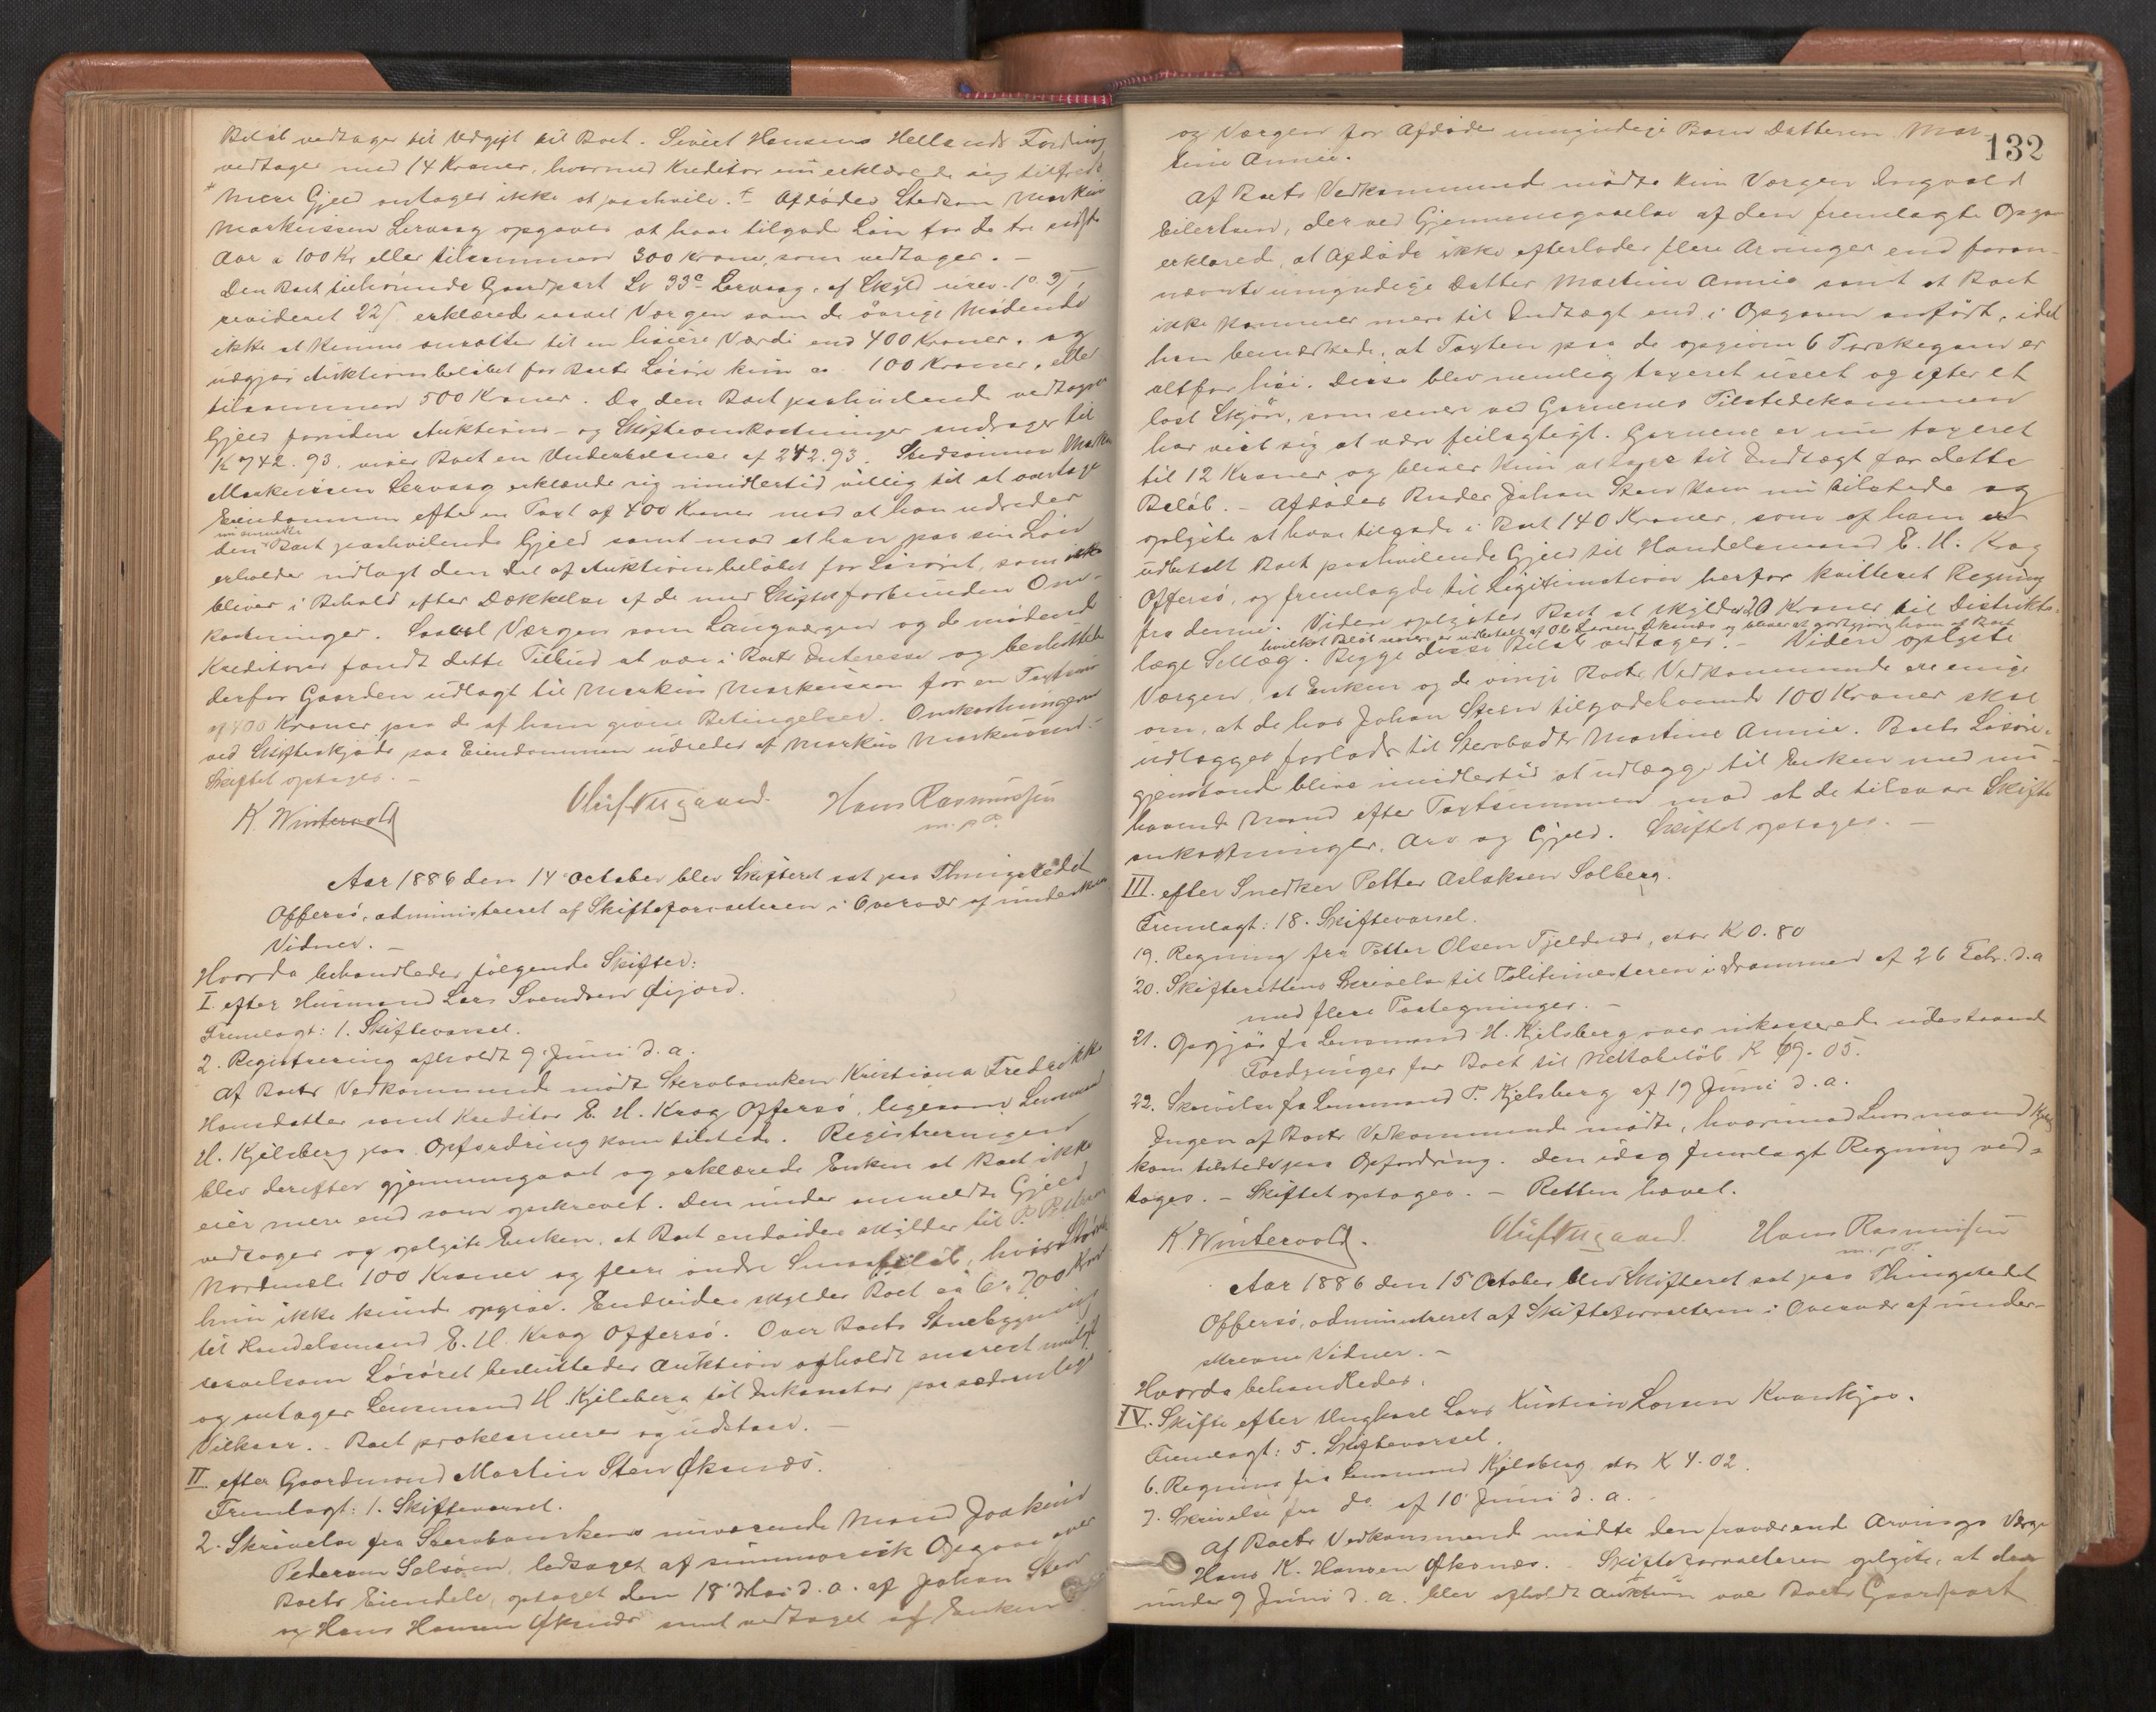 Beløb vedtages til Udgift til Boet. Sivert Hansens Hellands Fordring
vedtages med 14 Kroner, hvormed Kreditor nu erklærede sig tilfreds
Mere Gjeld antages ikke at paahvile. Afdødes Stedsøn Markus
Markussen Lervaag opgaves at have tilgode Løn for de tre sidste
Aar a 100 Kr eller tilsammen 300 Kroner, som vedtages. -
Den Boet tilhørende Gaardpart Lr 33c Lervaag, af Skyld urev. 1 o. 3 /,
revideret 22/ erklærede saavel Værgen som de øvrige Mødende
ikke at kunne ansættes til en høiere Værdi end 400 Kroner, og
udgjør Auktionsbeløbet for Boets Løsøre kun ca. 100 Kroner, eller
tilsammen 500 Kroner. Da den Boet paahvilende vedtagne
Gjeld foruden Auktions- og Skifteomkostninger andrager til
Kr 742.93. viser Boet en Underbalance af 242.93. Stedsønnen Markus
Markussen Lervaag erklærede sig imidlertid villig til at overtage
Eiendommen efter en Taxt af 400 Kroner mod at han udreder
den nu anmeldte Boet paahvilende Gjeld samt mod at han paa sin Løn
erholder udlagt den Del af Auktionsbeløbet for Løsøret, som
bliver i Behold efter Dækkelse af de med Skiftet forbunden Om-
kostninger. Saavel Værgen som Laugværgen og de mødende
Kreditorer fandt dette Tilbud at være i Boets Interesse og besluttede
derfor Gaarden udlagt til Markus Markussen for en Taxtsum
af 400 Kroner paa de af ham givne Betingelser. Omkostningerne
ved Skifteskjøde paa Eiendommen udredes af Markus Markussen. -
Skiftet optages. -
K. Wintervold Oluf Hans Rasmussen
m. p. P.
Aar 1886 den 14 October blev Skifteret sat paa Thingstedet
Offersø, administreret af Skifteforvalteren i Overvær af underskrevne
Vidner. -
Hvorda behandledes følgende Skifter:
I. efter Husmand Lars Svendsen Øijord.
Fremlagt: 1. Skiftevarsel.
2. Registrering afholdt 9 Juni d. a.
Af Boets Vedkommende mødte Stervboenken Kristiana Fredrikke
Hansdatter samt Kreditor E. H. Krog Offersø, ligesom Lensmand
H. Kjelsberg paa Opfordring kom tilstede. Registreringen
blev derefter gjennemgaaet og erklærede Enken at Boet ikke
eier mere end som opskrevet. Den under anmeldte Gjeld
vedtages og opgiste Enken, at Boet endvidere skylder til P.
100 Kroner og flere andre Smaabeløb, hvis Størrelse
hun ikke kunde opgive. Endvidere skylder Boet ca 6 a 700 Kroner
til Handelsmand E. H. Krog Offersø. Over Boets Stuebygning
saavelsom Løsøret besluttedes Auktion afholdt snarest muligt
og antages Lensmand H. Kjelsberg til Inkassator paa sædvanlige
Vilkaar. - Boet proklameres og udstaar. -
II. efter Gaardmand Martin Sten Øksnæs.
Fremlagt: 1. Skiftevarsel.
2. Skrivelse fra Stervboenkens nuværende Mand Joakim
Pedersen Salsøen, ledsaget af summarisk Opgave over
Boets Eiendele, optaget den 18 Mai d. a. af Johan Sten
og Hans Hansen Øksnæs samt vedtaget af Enken
132
og Værgen for Afdødes umyndige Barn Datteren Mar
tine Annie.
Af Boets Vedkommende mødte kun Værgen Ingvald
Eilertsen, der ved Gjennemgaaelse af den fremlagte Opgave
erklærede, at Afdøde ikke efterlader flere Arvinger end foran-
nævnte umyndige Datter Martine Annie samt at Boet
ikke kommer mere til Indtægt end i Opgaven anført, idet
han bemærkede, at Taxten paa de opgivne 6 Torskegarn er
altfor høi. Disse blev nemlig taxeret useet og efter et
løst Skjøn, som senere ved Garnenes Tilstedekommen
har vist sig at være feilagtigt. Garnene er nu taxeret
til 12 Kroner og bliver kun at tage til Indtægt for dette
Beløb. - Afdødes Broder Johan Sten kom nu tilstede og
opgiste at have tilgode i Boet 140 Kroner, som af ham er
udbetalt Boet paahvilende Gjeld til Handelsmand E. H. Krog
Offersø, og fremlagde til Legitimation herfor kvitteret Regning
fra denne. Videre opgistes Boet at skylde 20 Kroner til Distrikts-
hvilket Beløb er udbetalt af Ole Larsen Øksnæs og bliver at godtgjøre ham af Boet
læge Selläg. Begge disse Beløb vedtages. - Videre opgiste
Værgen, at Enken og de øvrige Boets Vedkommende ere enige
om, at de hos Johan Steen tilgodehavende 100 Kroner skal
udlægges forlods til Stervbodtr Martine Annie. Boets Løsøre-
gjenstande blive imidlertid at udlægge til Enken med nu-
havende Mand efter Taxtsummen mod at de tilsvare Skifte
omkostninger, Arv og Gjeld. Skiftet optages. -
III. efter Snedker Petter Aslaksen Solberg.
Fremlagt: 18. Skiftevarsel.
19. Regning fra Petter Olsen Fjeldnæs, stor K 0.80
20. Skifterettens Skrivelse til Politimesteren i Drammen af 26 Febr. d. a
med flere Paategninger. -
21. Opgjør fra Lensmand H. Kjelsberg over inkasserede udestaaende
Fordringer for Boet til Nettobeløb K 69.05.
22. Skrivelse fra Lensmand P. Kjelsberg af 19 Juni d. a.
Ingen af Boets Vedkommende mødte, hvorimod Lensmand Kjelsberg
kom tilstede paa Opfordring. Den idag fremlagt Regning ved-
tages. - Skiftet optages. - Retten hævet.
K Wintervold. Oluf Hans Rasmussen
m. p. P.
Aar 1886 den 15 October blev Skifteret sat paa Thingstedet
Offersø, administreret af Skifteforvalteren i Overvær af under-
skrevne Vidner. -
Hvorda behandledes.
IV. Skifte efter Ungkarl Lars Kristian Larsen Kvankjos.
Fremlagt: 5. Skiftevarsel.
6. Regning fra Lensmand Kjelsberg stor K 4.02.
7. Skrivelse fra do af 10 Juni d. a.
Af Boets Vedkommende mødte den fraværende Arvings Værge
Hans K. Hansen Øksnæs. - Skifteforvalteren oplyste, at der
under 9 Juni d. a. blev afholdt Auktion over Boets Gaardpart